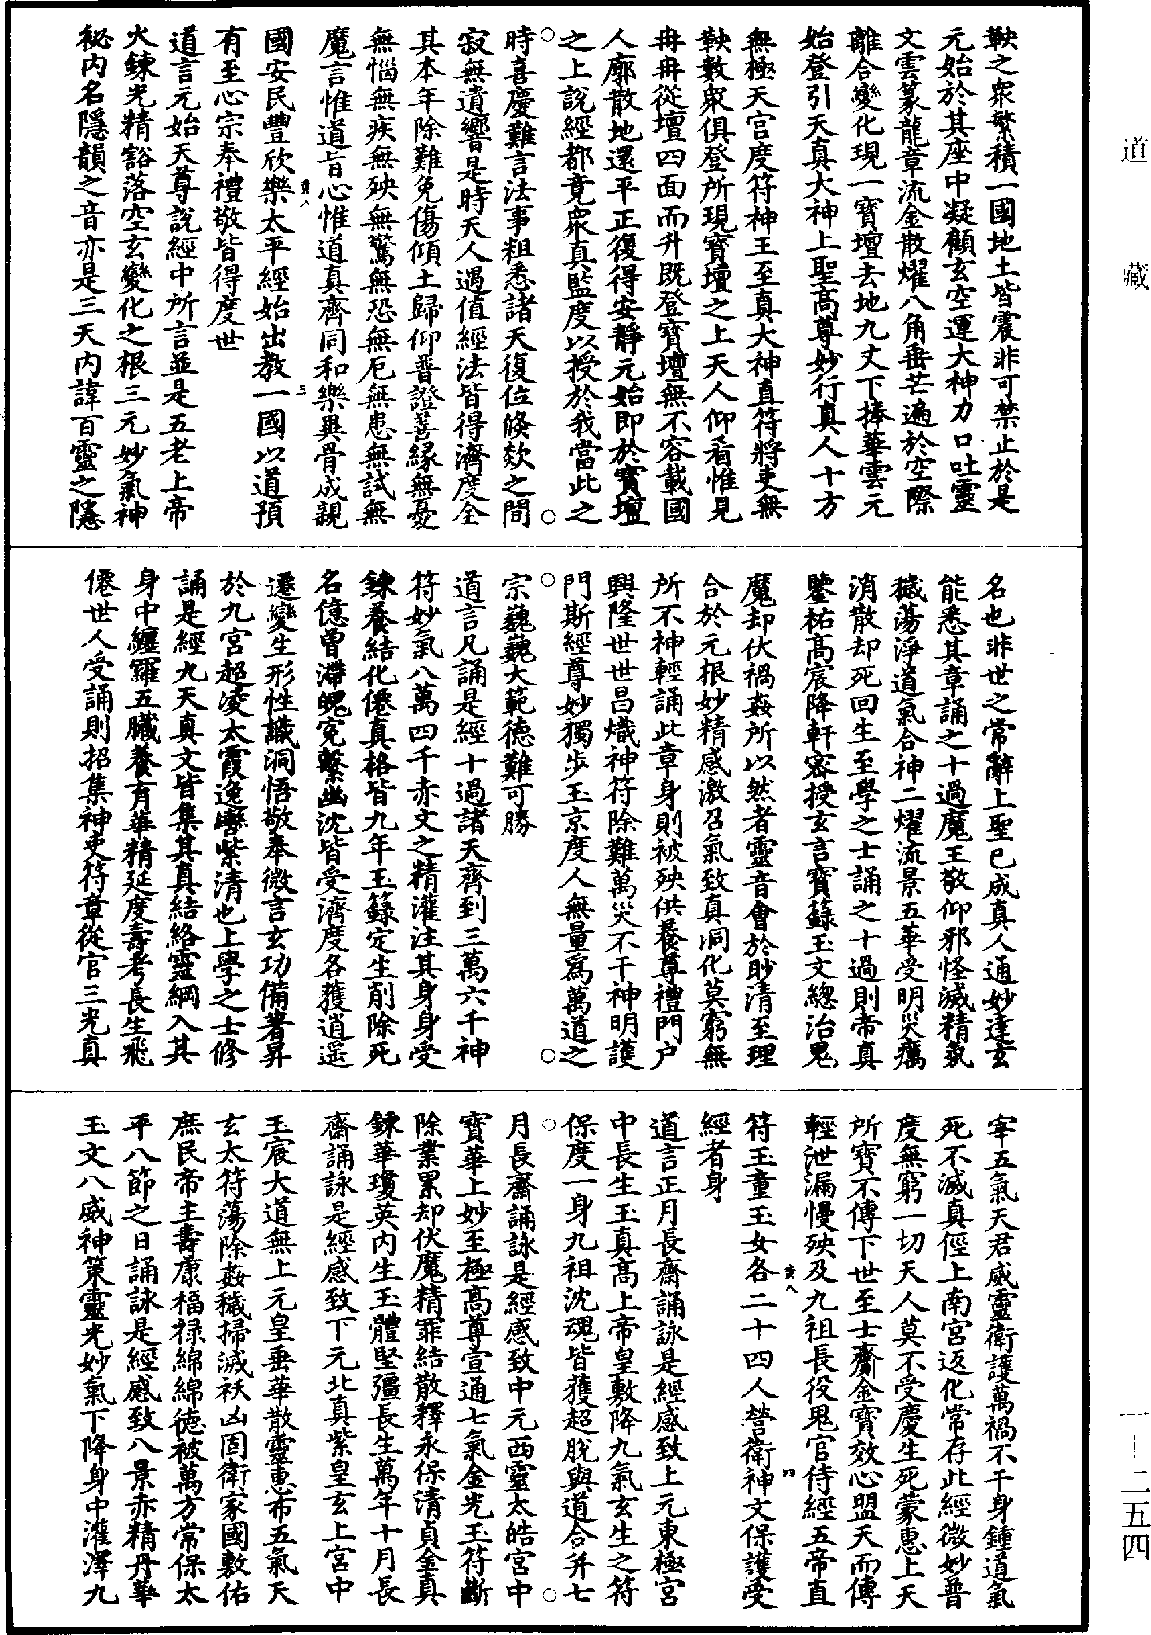 鞅之衆繁積一國地土皆震非可禁止於是
元始於其座中凝顧玄空運大神力口吐靈
文雲篆龍章流金散燿八角垂芒遍於空際
離合變化現一寶壇去地九丈下捧華雲元
始登引天真大神上聖高尊妙行真人十方
無極天宮度符神王至真大神直符將吏無
鞅數衆俱登所現寶壇之上天人仰看惟見
冉冉從壇四面而升既登寶壇無不容載國
人廓散地還平正復得安靜元始即於寶壇
之上說經都竟衆真監度以授於我當此之
時喜慶難言法事粗悉諸天復位倏欻之間
寂無遺響是時天人遇值經法皆得濟度全
其本年除難免傷傾土歸仰普證善緣無憂
無惱無疾無殃無驚無恐無厄無患無試無
魔言惟道旨心惟道真齊同和樂異骨成親
國安民豐欣樂太平經始出教一國以道預
有至心宗奉禮敬皆得度世
道言元始天尊說經中所言並是五老上帝
火鍊光精豁落空玄變化之根三元妙氣神
祕内名隱韻之音亦是三天内諱百靈之隱
名也非世之常辭上聖已成真人通妙達玄
能悉其章誦之十過魔王敬仰邪怪滅精氛
穢蕩淨道氣合神二燿流景五華受明災癘
消散却死回生至學之士誦之十過則帝真
鑒祐高宸降軒密授玄言寶籙玉文總治鬼
魔却伏禍姦所以然者靈音會於眇清至理
合於元根妙精感激召氣致真洞化莫窮無
所不神輕誦此章身則被殃供養尊禮門户
興隆世世昌熾神符除難萬災不干神明護
門斯經尊妙獨步玉京度人無量爲萬道之
宗巍巍大範德難可勝
道言凡誦是經十過諸天齊到三萬六千神
符妙氣八萬四千赤文之精灌注其身身受
鍊養結化僊真格皆九年玉籙定生削除死
名億曾滯魄寃繫幽沈皆受濟度各獲逍遥
遷變生形性識洞悟敬奉微言玄功備著昇
於九宮超凌太霞逸轡紫清也上學之士修
誦是經九天真文皆集其真結絡靈綱入其
身中纏羅五臟養育華精延度壽考長生飛
僊世人受誦則招集神吏符章從官三光真
宰五氣天君威靈衛護萬禍不干身鍾道氣
死不滅真徑上南宮返化常存此經微妙普
度無窮一切天人莫不受慶生死蒙惠上天
所寶不傳下世至士齎金寶效心盟天而傳
輕泄漏慢殃及九祖長役鬼官侍經五帝直
符玉童玉女各二十四人營衛神文保護受
經者身
道言正月長齋誦詠是經感致上元東極宮
中長生玉真高上帝皇敷降九氣玄生之符
保度一身九祖沈魂皆獲超脱與道合并七
月長齋誦詠是經感致中元西靈太皓宮中
寶華上妙至極高尊宣通七氣金光玉符斷
除業累却伏魔精罪結散釋永保清貞金真
鍊華瓊英内生玉體堅彊長生萬年十月長
齋誦詠是經感致下元北真紫皇玄上宮中
玉宸大道無上元皇垂華散靈惠布五氣天
玄太符蕩除姦穢掃滅袄凶固衛家國敷佑
庶民帝主壽康福禄綿綿德被萬方常保太
平八節之日誦詠是經感致八景赤精丹華
玉文八威神策靈光妙氣下降身中灌澤九
道
藏
一—二五四